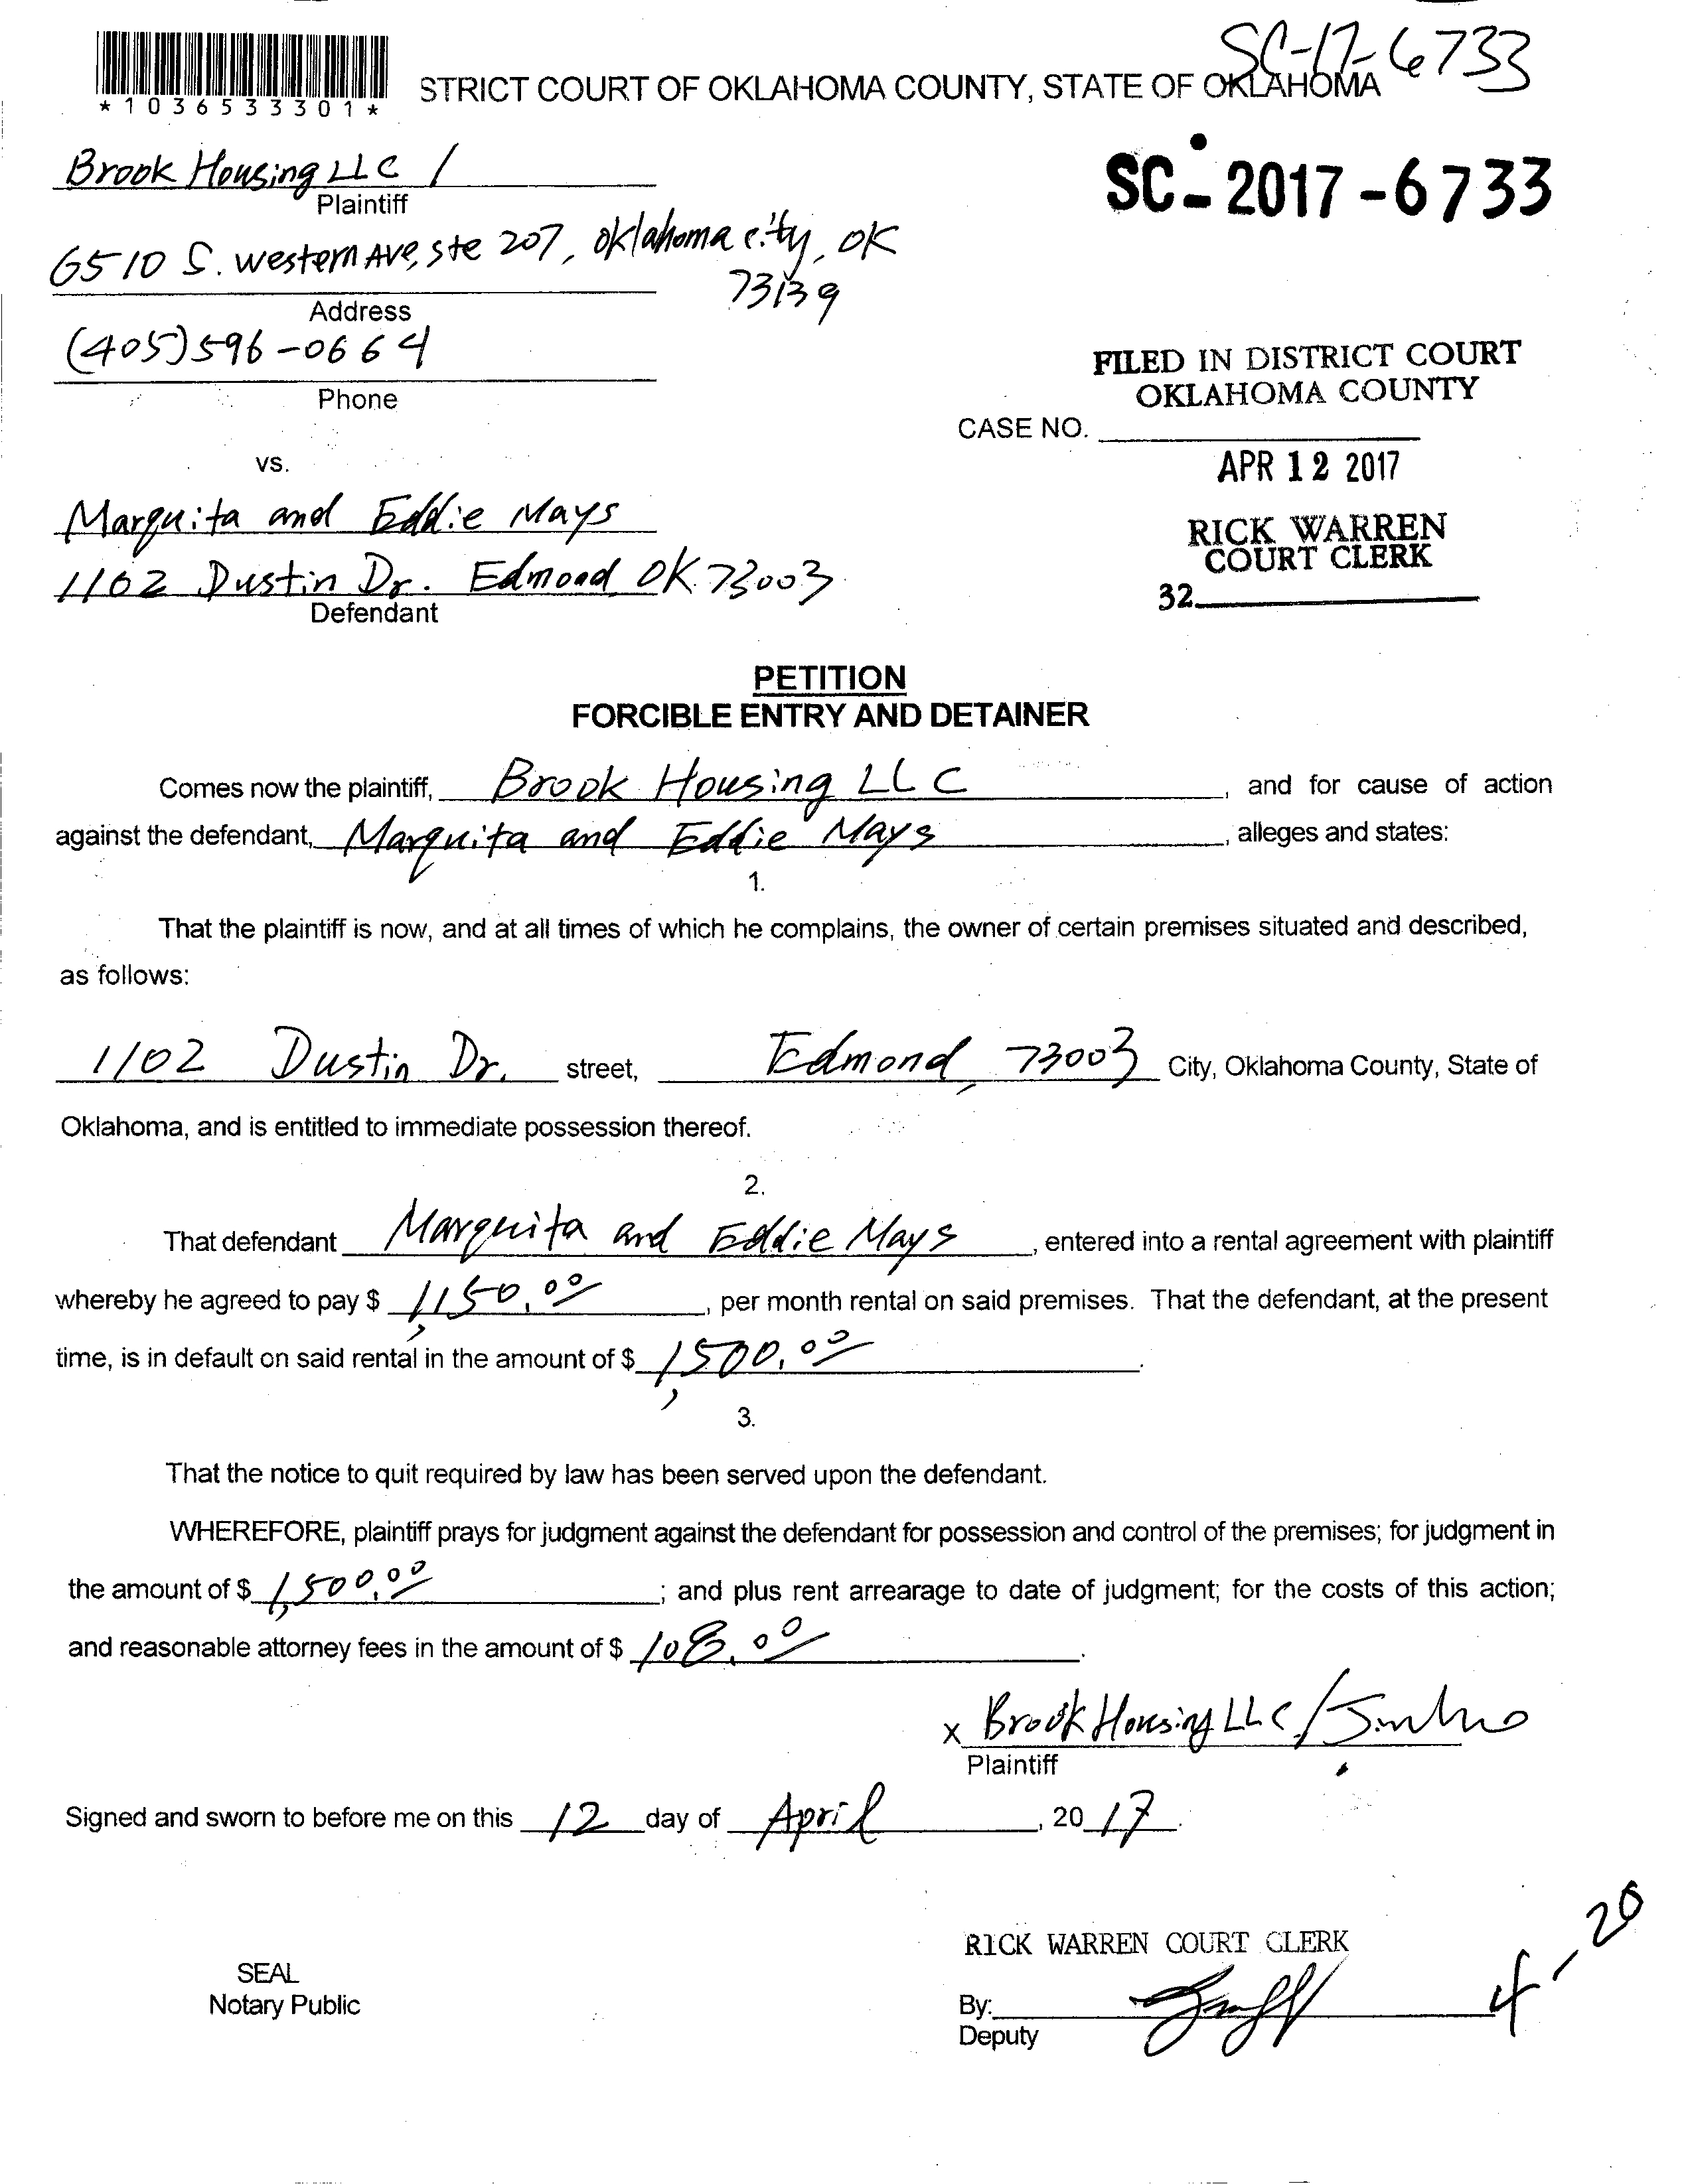 SC-17-6733
*1036533301*
STRICT COURT OF OKLAHOMA COUNTY, STATE OF OKLAHOMA
SC-2017-6733
Brook Housing LLC /
Plaintiff
6510 S. western Ave, ste 207, oklahoma city, OK
73139
Address
(405)596-0664
Phone
FILED IN DISTRICT COURT
OKLAHOMA COUNTY
CASE NO.
vs.
APR 12 2017
Marquita and Eddie Mays
RICK WARREN
COURT CLERK
1102 Dustin Dr. Edmond OK 73003
32
Defendant
PETITION
FORCIBLE ENTRY AND DETAINER
Comes now the plaintiff, Brook Housing LLC, and for cause of action
against the defendant, Marquita and Eddie Mays, alleges and states:
1.
That the plaintiff is now, and at all times of which he complains, the owner of certain premises situated and described,
as follows:
1102 Dustin Dr. street, Edmond, 73003 City, Oklahoma County, State of
Oklahoma, and is entitled to immediate possession thereof.
2.
That defendant Marquita and Eddie Mays, entered into a rental agreement with plaintiff
whereby he agreed to pay $ 1,150.00, per month rental on said premises. That the defendant, at the present
time, is in default on said rental in the amount of $ 1,500.00.
3.
That the notice to quit required by law has been served upon the defendant.
WHEREFORE, plaintiff prays for judgment against the defendant for possession and control of the premises; for judgment in
the amount of $ 1,500.00; and plus rent arrearage to date of judgment; for the costs of this action;
and reasonable attorney fees in the amount of $ 108.00.
x Brook Housing LLC /
Plaintiff
Signed and sworn to before me on this 12 day of April, 20 17.
RICK WARREN COURT CLERK
4-20
SEAL
Notary Public
By:
Deputy